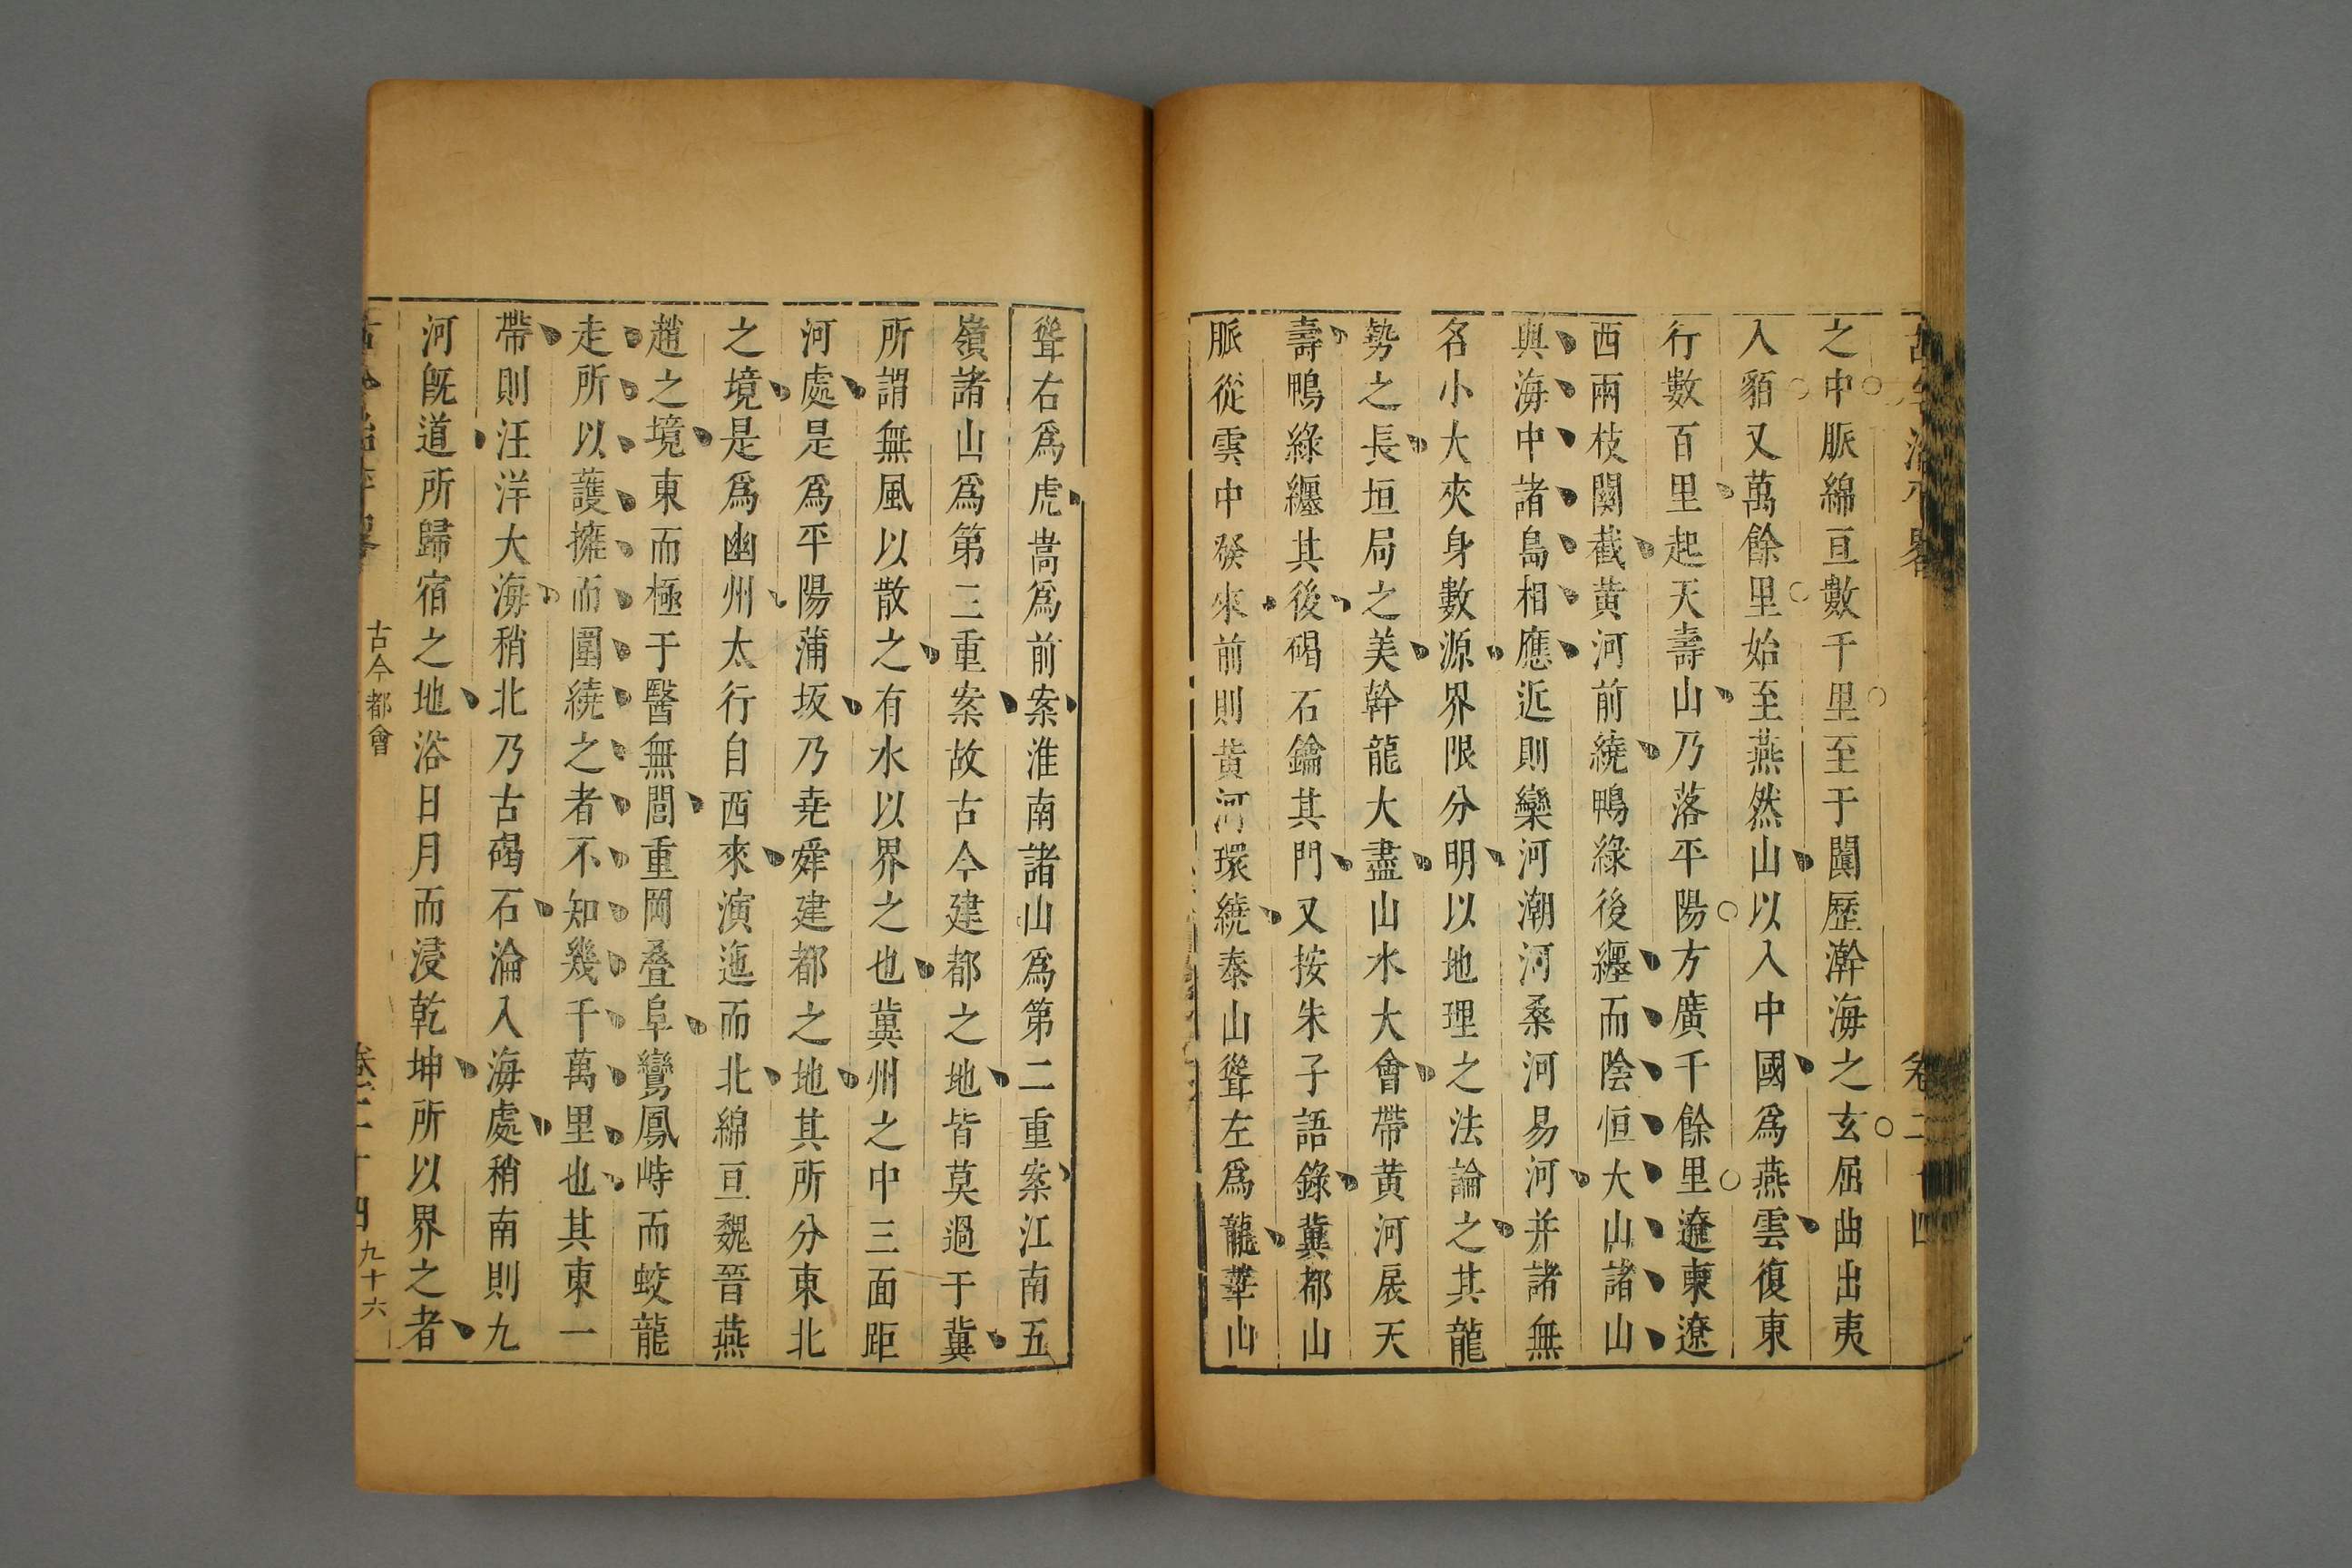 古今治平畧 卷二十四
之中脈綿亘數千里至于闐歷瀚海之玄屈曲出夷
入貊又萬餘里始至燕然山以入中國爲燕雲復東
行數百里起天壽山乃落平陽方廣千餘里遼東遼
西兩枝關截黄河前繞鴨綠後纏而陰恒大山諸山
與海中諸島相應近則欒河潮河桑河易河并諸無
名小大夾身數源界限分明以地理之法論之其龍
勢之長垣局之美幹龍大盡山水大會帶黄河扆天
壽鴨綠纏其後碣石鑰其門又按朱子語錄冀都山
脈從雲中發來前則黄河環繞泰山聳左爲龍華山
聳右爲虎嵩爲前案淮南諸山爲第二重案江南五
嶺諸山爲第三重案故古今建都之地皆莫過于冀
所謂無風以散之有水以界之也冀州之中三面距
河處是爲平陽蒲坂乃堯舜建都之地其所分東北
之境是爲幽州太行自西來演迤而北綿亘魏晉燕
趙之境東而極于醫無閭重岡叠阜鸞鳳峙而蛟龍
走所以護擁而圍繞之者不知幾千萬里也其東一
帶則汪洋大海稍北乃古碣石淪入海處稍南則九
河旣道所歸宿之地浴日月而浸乾坤所以界之者
古今治平畧 古今都會 卷二十四 九十六